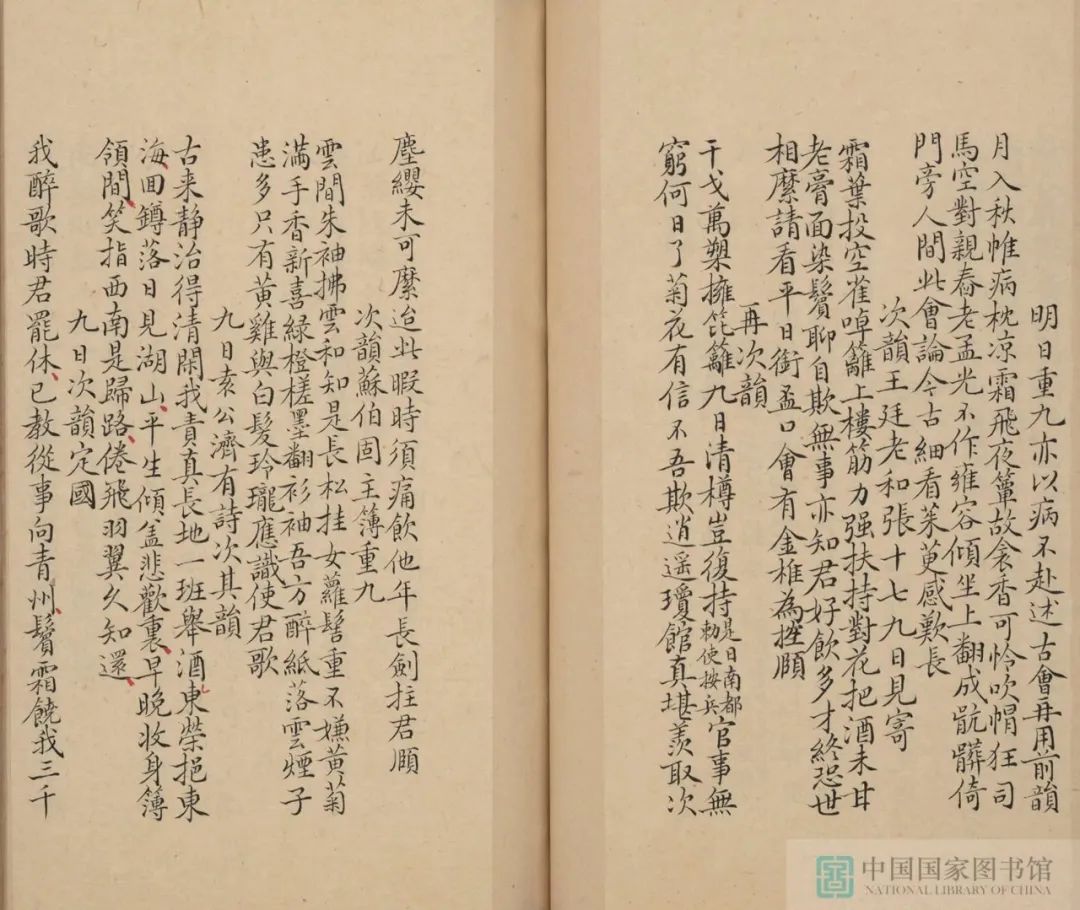 明日重九亦以病不赴述古會再用前韻
月入秋帷病枕凉霜飛夜簟故衾香可怜吹帽狂司
馬空對親舂老孟光不作雍容傾坐上翻成骯髒倚
門旁人間此會論今古細看茱萸感歎長
次韻王廷老和張十七九日見寄
霜葉投空雀啅籬上樓筋力强扶持對花把酒未甘
老膏面染鬢聊自欺無事亦知君好飲多才終恐世
相縻請看平日銜盃口會有金椎為控頤
再次韻
干戈萬槊擁笓籬九日清樽豈復持是日南都勅使按兵官事無
窮何日了菊花有信不吾欺逍遥瓊館真堪羨取次
塵纓未可縻迨此暇時須痛飲他年長劍拄君頤
次韻蘇伯固主簿重九
雲間朱袖拂雲和知是長松挂女蘿髻重不嫌黄菊
满手香新喜緑橙槎墨翻衫袖吾方醉紙落雲煙子
患多只有黄雞與白髮玲瓏應識使君歌
九日袁公濟有詩次其韻
古来静治得清閑我責真長地一班舉酒東榮挹東
海回罇落日見湖山平生傾盖悲歡裏早晚收身簿
領間笑指西南是歸路倦飛羽翼久知還
九日次韻定國
我醉歌時君罷休已教從事向青州鬢霜饒我三千
中国国家图书馆
NATIONAL LIBRARY OF CHINA